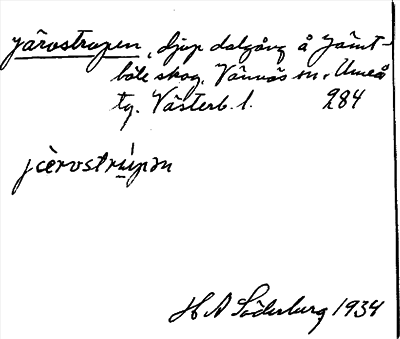 Järvstrupen, djup dalgång å Jämt-
böle skog, Vännäs sn, Umeå
tg. Västerb. l. 284
jærvstrupən
H A Söderberg 1934